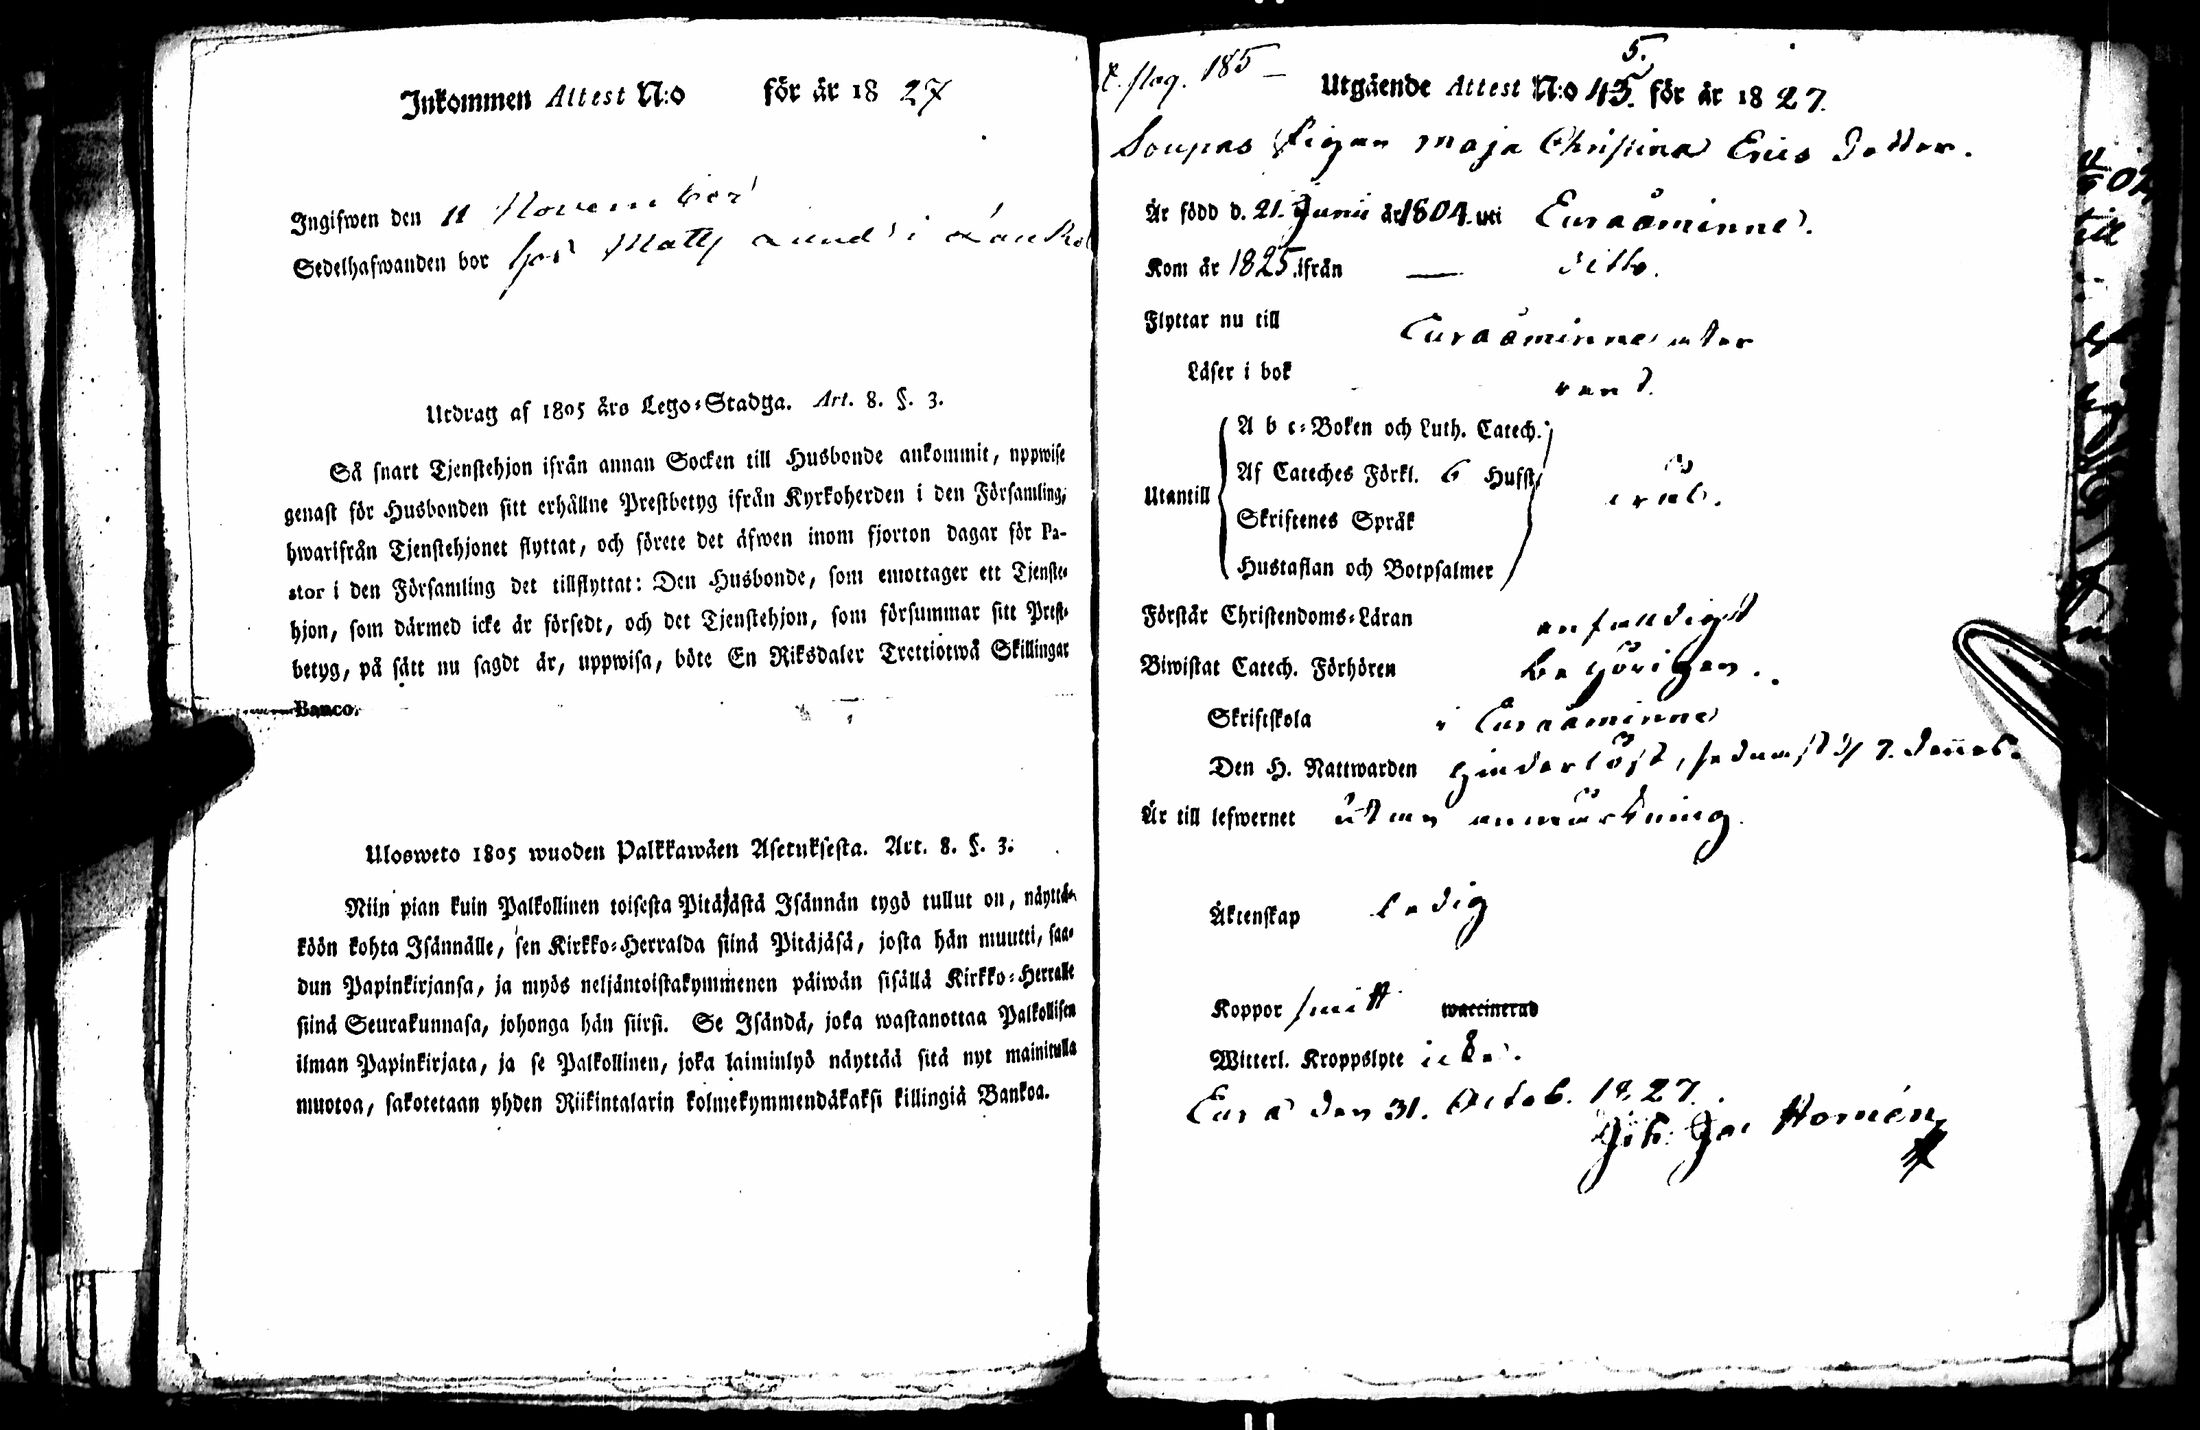 Inkommen Attest N:o för år 1827
Ingifwen den 11 November
Sedelhafwanden bor hos Matts Lund i
Utdrag af 1805 års Lego-Stadga. Art. 8. §. 3.
Så snart Tjenstehjon ifrån annan Socken till Husbonde ankommit, uppwise
genast för Husbonden sitt erhållne Prestbetyg ifrån Kyrkoherden i den Församling,
hwarifrån Tjenstehjonet flyttat, och förete det äfwen inom fjorton dagar för Pa-
stor i den Församling det tillflyttat: Den Husbonde, som emottager ett Tjenste-
hjon, som därmed icke är försedt, och det Tjenstehjon, som försummar sitt Prest-
betyg, på sätt nu sagdt är, uppwisa, böte En Riksdaler Trettiotwå Skillingar
Banco.
Ulosweto 1805 wuoden Palkkawäen Asetuksesta. Art. 8. §. 3.
Niin pian kuin Palkollinen toisesta Pitäjästä Isännän tygö tullut on, näyttä-
köön kohta Isännälle, sen Kirkko-Herralda siinä Pitäjäsä, josta hän muutti, saa-
dun Papinkirjansa, ja myös neljäntoistakymmenen päiwän sisällä Kirkko-Herralle
siinä Seurakunnasa, johonga hän siirsi. Se Isändä, joka wastanottaa Palkollisen
ilman Papinkirjata, ja se Palkollinen, joka laiminlyö näyttää sitä nyt mainitulla
muotoa, sakotetaan yhden Riikintalarin kolmekymmendäkaksi killingiä Bankoa.
pag. 185
5.
Utgående Attest N:o 45. för år 1827.
Soupas Pigan Maja Christina Erics dotter.
Är född d. 21. Junii år 1804. uti Euraåminne.
Kom år 1825. ifrån — ditto.
Flyttar nu till Euraåminne åter
Läser i bok rent.
Utantill
A b c-Boken och Luth. Catech.
Af Cateches Förkl. 6 Hufst.
Skriftenes Språk
Hustaflan och Botpsalmer
Förstår Christendoms-Läran enfaldigt
Biwistat Catech. Förhören behörigen.
Skriftskola i Euraåminne
Den H. Nattwarden hinderlöst, sednast d. 7. dennes.
Är till lefwernet utan anmärkning.
Äktenskap ledig
Koppor haft waccinerad
Witterl. Kroppslyte icke.
Eura den 31. Octob. 1827.
Joh. Jac Homén